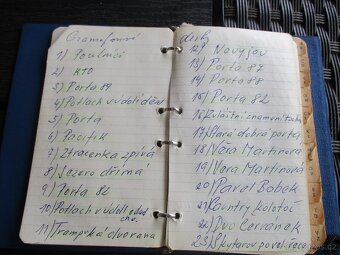 Gramofonové
1) Poutníci
2) KTO
3) Porta 89
4) Potlach v údolí děsů
5) Porta
6) Pacifik
7) Ztracenka zpívá
8) Jezero dřímá
9) Porta 82
10) Potlach v údolí
11) Trampská dvorana
desky
12) Nový Jou
13) Porta 87
14) Porta 88
15) Porta 82
16) Zvláštní znamení touha
17) Stará dobrá porta
18) Věra Martinová
19) Věra Martinová
20) Pavel Bobek
21) Country kolotoč
22) Duo Červánek
23) Skytarou